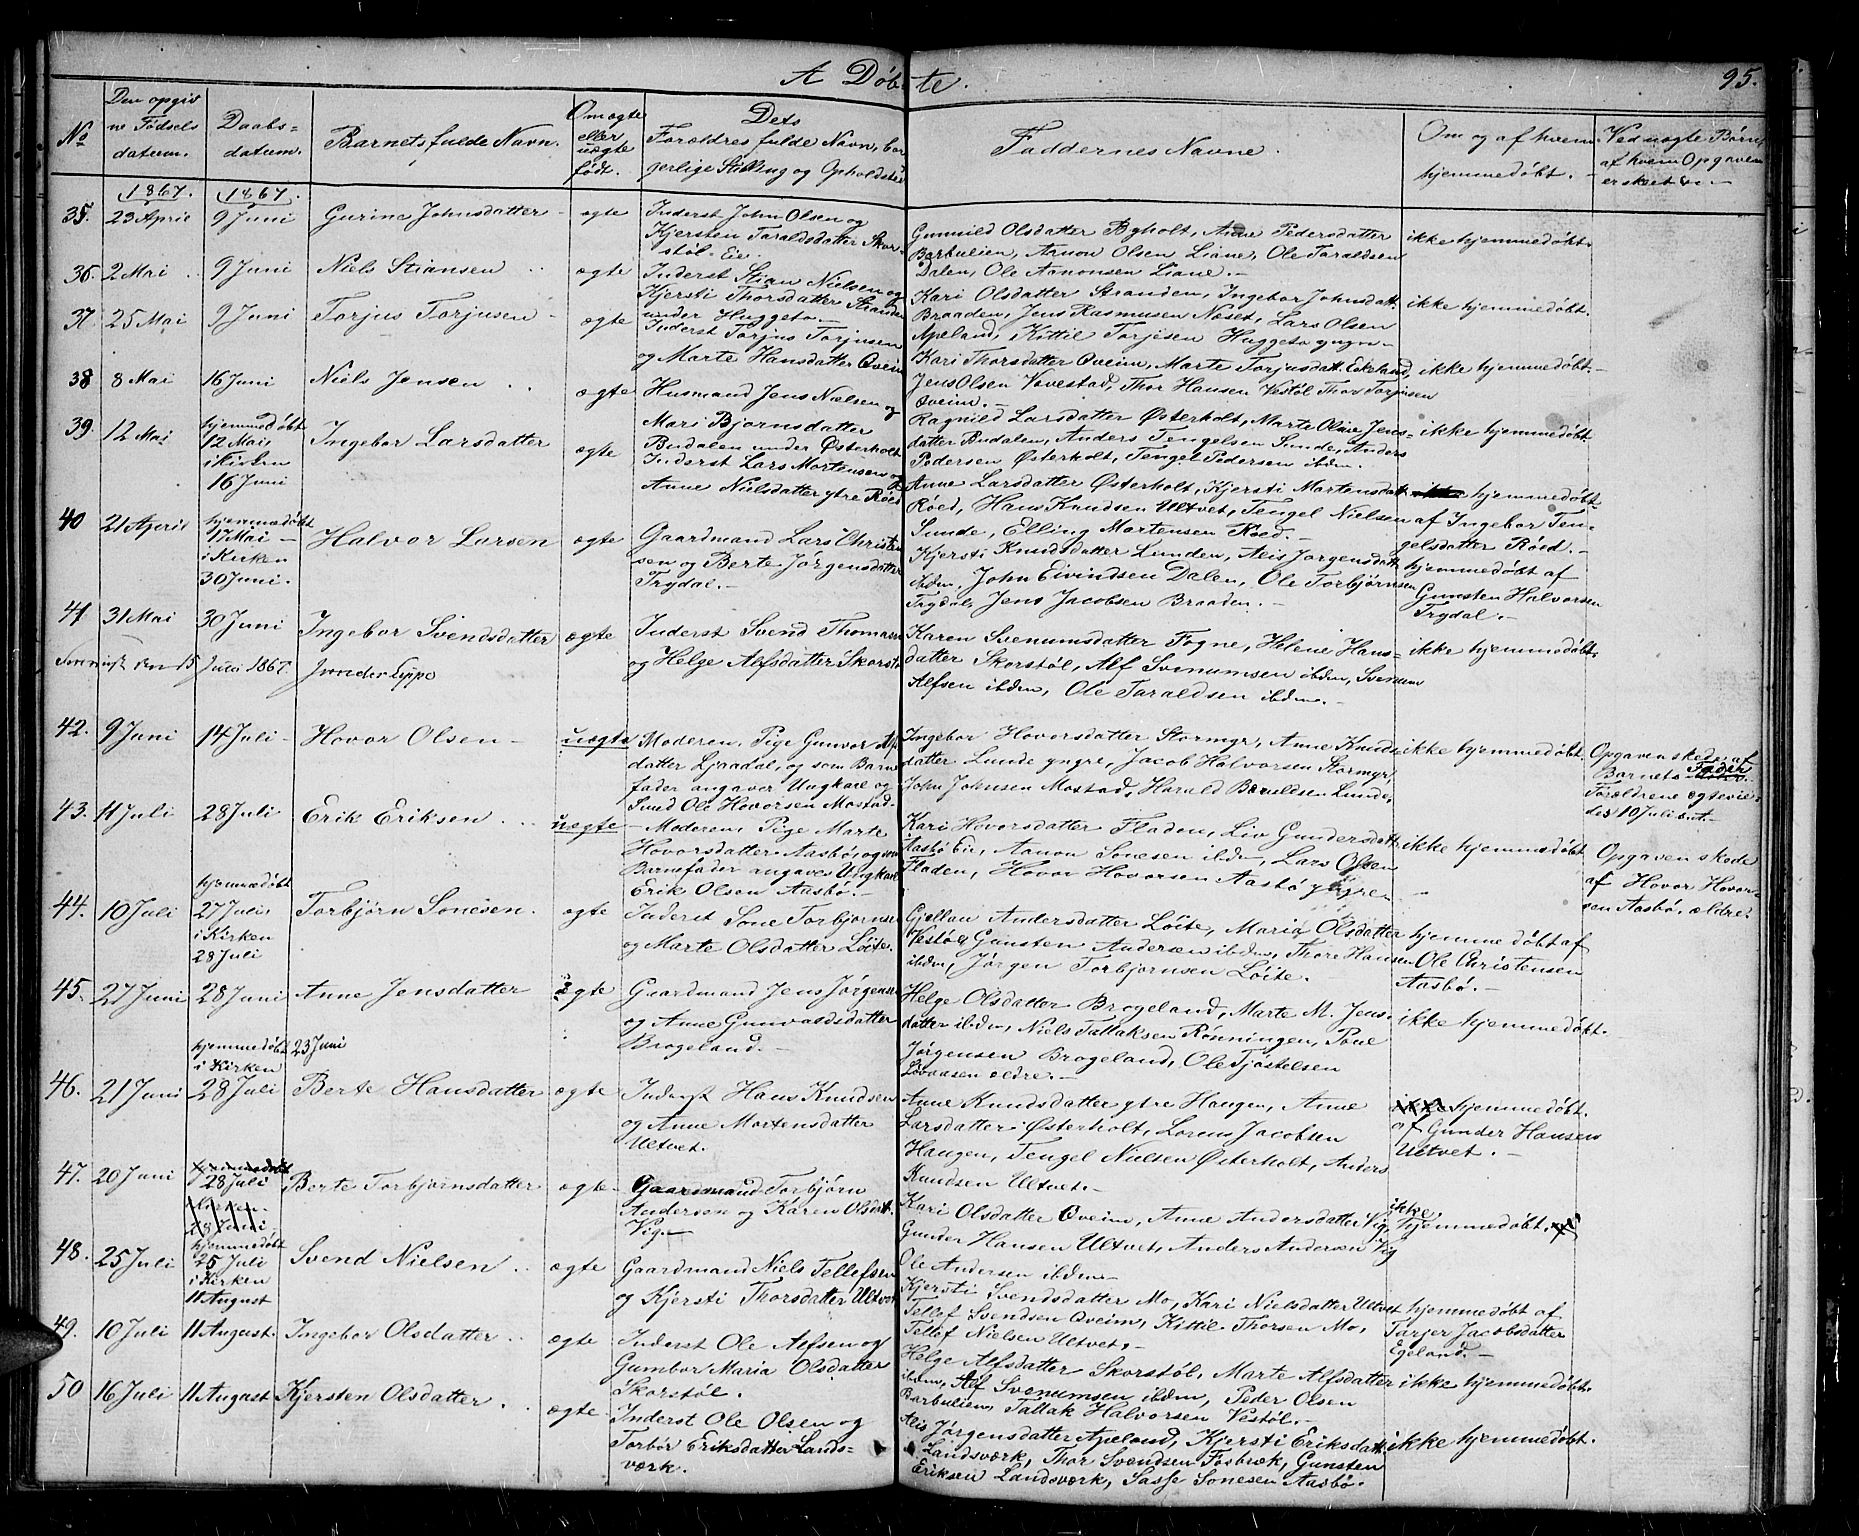 A Døbte.
95.
No
Den opgiv
ne Fødsels
datum.
Daabs-
datum.
Barnets fulde Navn.
Om ægte
eller
uægte
født.
Dets
Forældres fulde Navn, bor
gerlige Stilling og Opholdsted
Faddernes Navne.
Om og af hvem
hjemmedøbt.
Ved uægte Børn,
af hvem Opgaven
er skeet
1867.
1867.
35. 23 April 9 Juni Gurine Johnsdatter ægte
Inderst John Olsen og
Kjersten Taraldsdatter Skor-
støl-Eie.
Gunnild Olsdatter Byholt, Anne Pedersdatter
Barbulien, Arnon Olsen Liane, Ole Taraldsen
Dalen, Ole Aanonsen Liane.
ikke hjemmedøbt.
36. 2 Mai 9 Juni Niels Stiansen ægte
Inderst Stian Nielsen og
Kjersti Thorsdatter Stranden
under Huggeto.
Kari Olsdatter Stranden, Ingebor Johnsdatt.
Braaden, Jens Rasmusen Neset, Lars Olsen
Apeland, Kittil Torjisen Huggeto yngre
ikke hjemmedøbt.
37 25 Mai 9 Juni Torjus Torjusen ægte
Inderst Torjus Torjusen
og Marte Hansdatter Øveim
Kari Thorsdatter Øveim, Marte Torjusdatt. Eikeland,
Jens Olsen Vivestad, Thor Hansen Vestøl Thor Torjusen
Øveim.
ikke hjemmedøbt.
38 8 Mai 16 Juni Niels Jensen ægte
Husmand Jens Nielsen og
Mari Bjørnsdatter
Budalen under Østerholt
Ragnild Larsdatter Østerholt, Marte Oline Jens-
datter Budalen, Anders Tengelsen Sunde, Anders
Pedersen Østerholt, Tengel Pedersen ibdm.
ikke hjemmedøbt.
39. 12 Mai
hjemmedøbt
12 Mai
i Kirken
16 Juni
Ingebor Larsdatter ægte
Inderst Lars Mortensen og
Anne Nielsdatter ytre Røed
Anne Larsdatter Østerholt, Kjersti Martensdatt.
Røed, Hans Knudsen Ultvet, Tengel Nielsen
Sunde, Elling Martensen Røed.
hjemmedøbt
af Ingebor Ten-
gelsdatter Røed.
40 21 April
hjemmedøbt
17 Mai
i Kirken
30 Juni.
Halvor Larsen ægte
Gaardmand Lars Christen
sen og Berte Jørgensdatter
Trydal.
Kjersti Knudsdatter Lunden, Aeis Jørgensdatt
ibdm, John Eivindsen Dalen, Ole Torbjørnsen
Trydal, Jens Jacobsen Braaden.
hjemmedøbt af
Gunsten Halvorsen
Trydal.
41 31 Mai 30 Juni Ingebor Svendsdatter ægte
Inderst Svend Thomasen
og Helge Alfsdatter Skorst.
Karen Svenumsdatter Fogne, Helene Hans-
datter Skorstøl, Alf Svenumsen ibdm, Svenum
Alfsen ibdm, Ole Taraldsen ibdm.
ikke hjemmedøbt.
den 15 Juli 1867.
42. 9 Juni 14 Juli Hovor Olsen uægte
Moderen, Pige Gunvor Alfs
datter Ljaadal, og som Barne
fader angaver Ungkarl og
Smed Ole Hovorsen Mostad.
Ingebor Hovorsdatter Stormyr, Anne Knuds
datter Lunde yngre, Jacob Halvorsen Stormyr,
John Johnsen Mostad, Harald Baruldsen Lunde,
ikke hjemmedøbt.
Opgaven skede af
Barnets Fader
Forældrene ægtevie-
des 10 Juli
43. 11 Juli 28 Juli Erik Eriksen uægte
Moderen, Pige Marte
Hovorsdatter Aasbø, og som
Barnefader angaves Ungkarl
Erik Olsen Aasbø.
Kari Hovorsdatter Fladen, Liv Gundersdatt.
Aasbø Eie, Aanon Sonesen ibdm, Lars Olsen
Fladen, Hovor Hovorsen Aasbø yngre
ikke hjemmedøbt
Opgaven skede
af Hovor Hovor-
sen Aasbø, ældre.
44. 10 Juli
hjemmedøbt
27 Juli
i Kirken
28 Juli
Torbjørn Sonesen. ægte
Inderst Sone Torbjørnsen
og Marte Olsdatter Løite.
Gjellau Andersdatter Løite, Maria Olsdatter
Vestøl, Gunsten Andersen ibdm, Thore Hansen
ibdm, Jørgen Torbjørnsen Løite.
hjemmedøbt af
Ole Christensen
Aasbø.
45. 27 Juni 28 Juni Anne Jensdatter ægte
Gaardmand Jens Jørgensen
og Anne Gunvaldsdatter
Brogeland.
Helge Olsdatter Brogeland, Marte M. Jens-
datter ibdm, Niels Tallaksen Rønningen, Poul
Jørgensen Brogeland, Ole Tjøstelsen
Løvaasen ældre.
ikke hjemmedøbt.
46. 21 Juni
hjemmedøbt 23 Juni
i Kirken
28 Juli
Berte Hansdatter ægte
Inderst Hans Knudsen
og Anne Mortensdatter
Ultvet.
Anne Knudsdatter ytre Haugen, Anne
Larsdatter Østerholt, Lorens Jacobsen
Haugen, Tengel Nielsen Østerholt, Anders
Knudsen Ultvet.
ikke hjemmedøbt.
af Gunder Hansen
Ultvet.
47. 20 Juni
hjemmedøbt
28 Juli
i Kirken
28 Juni
Berte Torbjørnsdatter ægte
Gaardmand Torbjørn
Andersen og Karen Olsdatt.
Vig.
Kari Olsdatter Øveim, Anne Andersdatter Vig,
Gunder Hansen Ultvet, Anders Andersen Vig
Ole Andersen ibdm.
ikke
hjemmedøbt. af
48. 25 Juli
hjemmedøbt
25 Juli
i Kirken
11 August
Svend Nielsen ægte
Gaardmand Niels Tellefsen
og Kjersti Thorsdatter Ultvet
Kjersti Svendsdatter Mo, Kari Nielsdatter Ultvet
Tellef Svendsen Øveim, Kittil Thorsen Mo,
Tellef Nielsen Ultvet.
hjemmedøbt af
Tarjer Jacobsdatter
Egeland.
49. 10 Juli 11 August. Ingebor Olsdatter ægte
Inderst Ole Alfsen og
Gumbor Maria Olsdatter
Skorstøl.
Helge Alfsdatter Skorstøl, Marte Alfsdatter
ibdm, Alf Svenumsen ibdm, Peder Olsen
Barbulien, Tallak Halvorsen Vestøl.
ikke hjemmedøbt.
50 16 Juli 11 August Kjersten Olsdatter ægte
Inderst Ole Olsen og
Torbor Eriksdatter Lands-
værk.
Aeis Jørgensdatter Apeland, Kjersti Eriksdatt.
Landsværk, Thor Svendsen Fosbæk, Gunsten
Eriksen Landsværk, Sasse Sonesen Aasbø.
ikke hjemmedøbt.